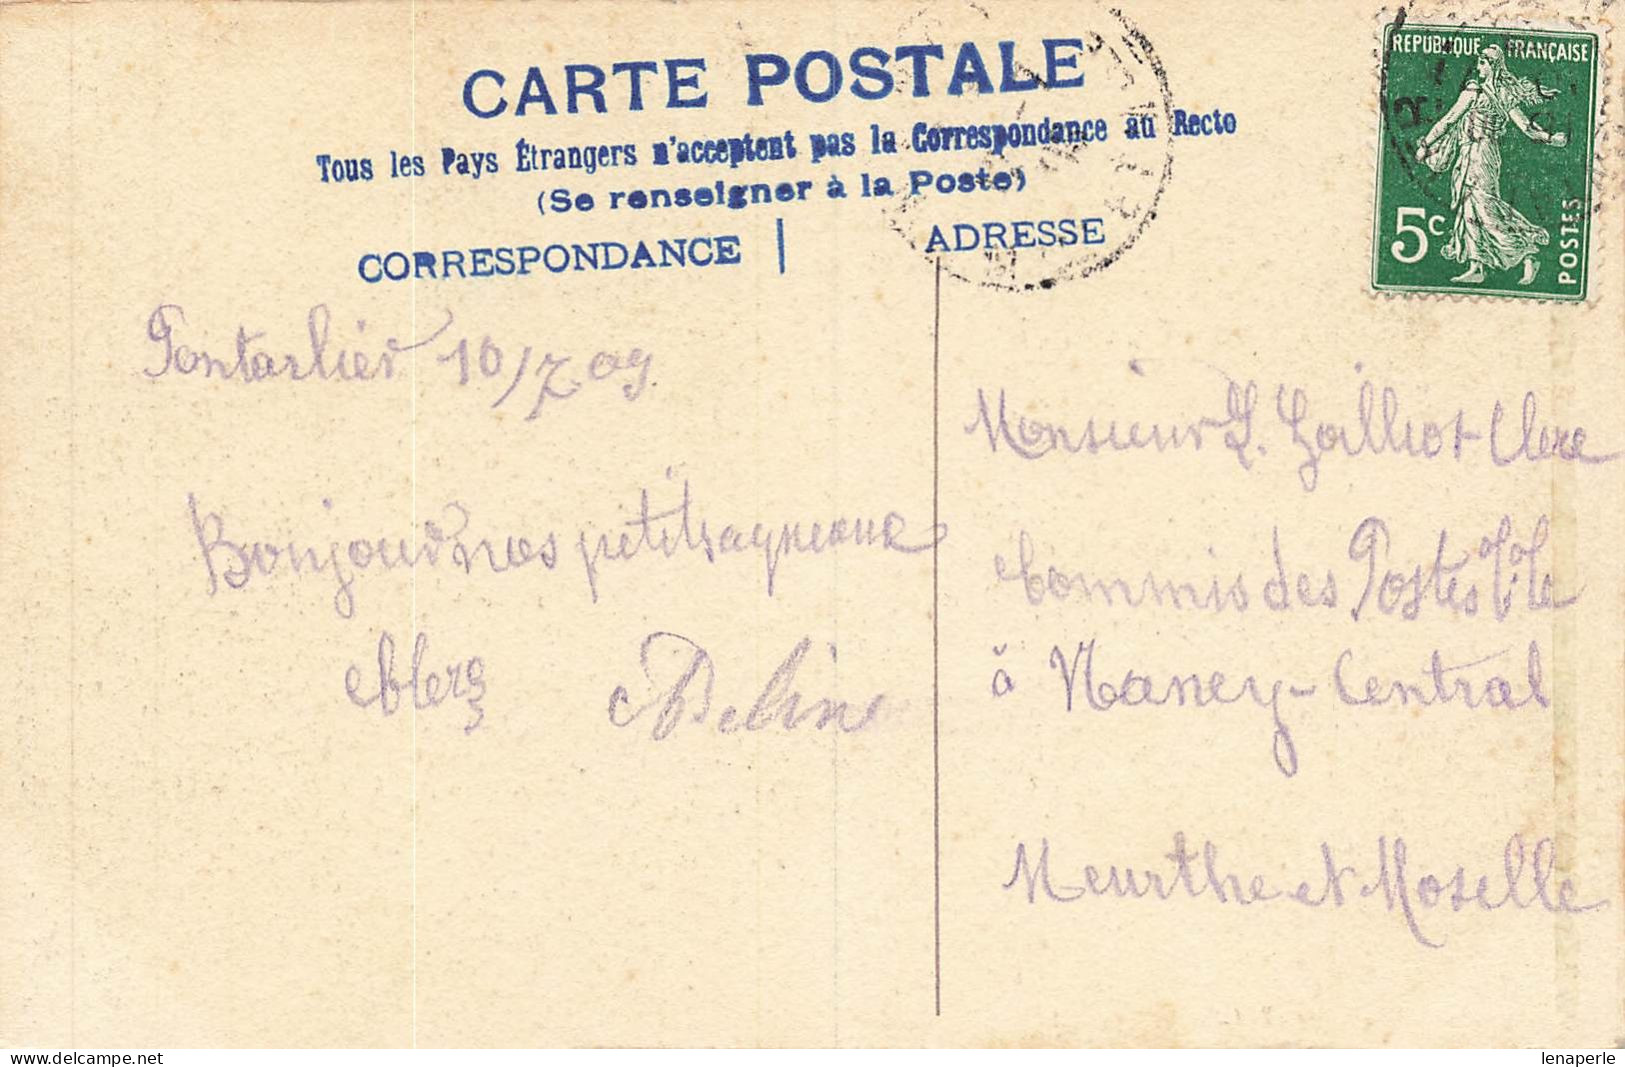 CARTE POSTALE
Tous les Pays Étrangers n'acceptent pas la Correspondance au Recto
(Se renseigner à la Poste)
CORRESPONDANCE | ADRESSE
REPUBLIQUE FRANÇAISE
5c
POSTES
Pontarlier 10/7.09.
Bonjour nos petits agneaux
Monsieur
Commis des Postes
à Nancy-Central
Meurthe et Moselle
lenaperle